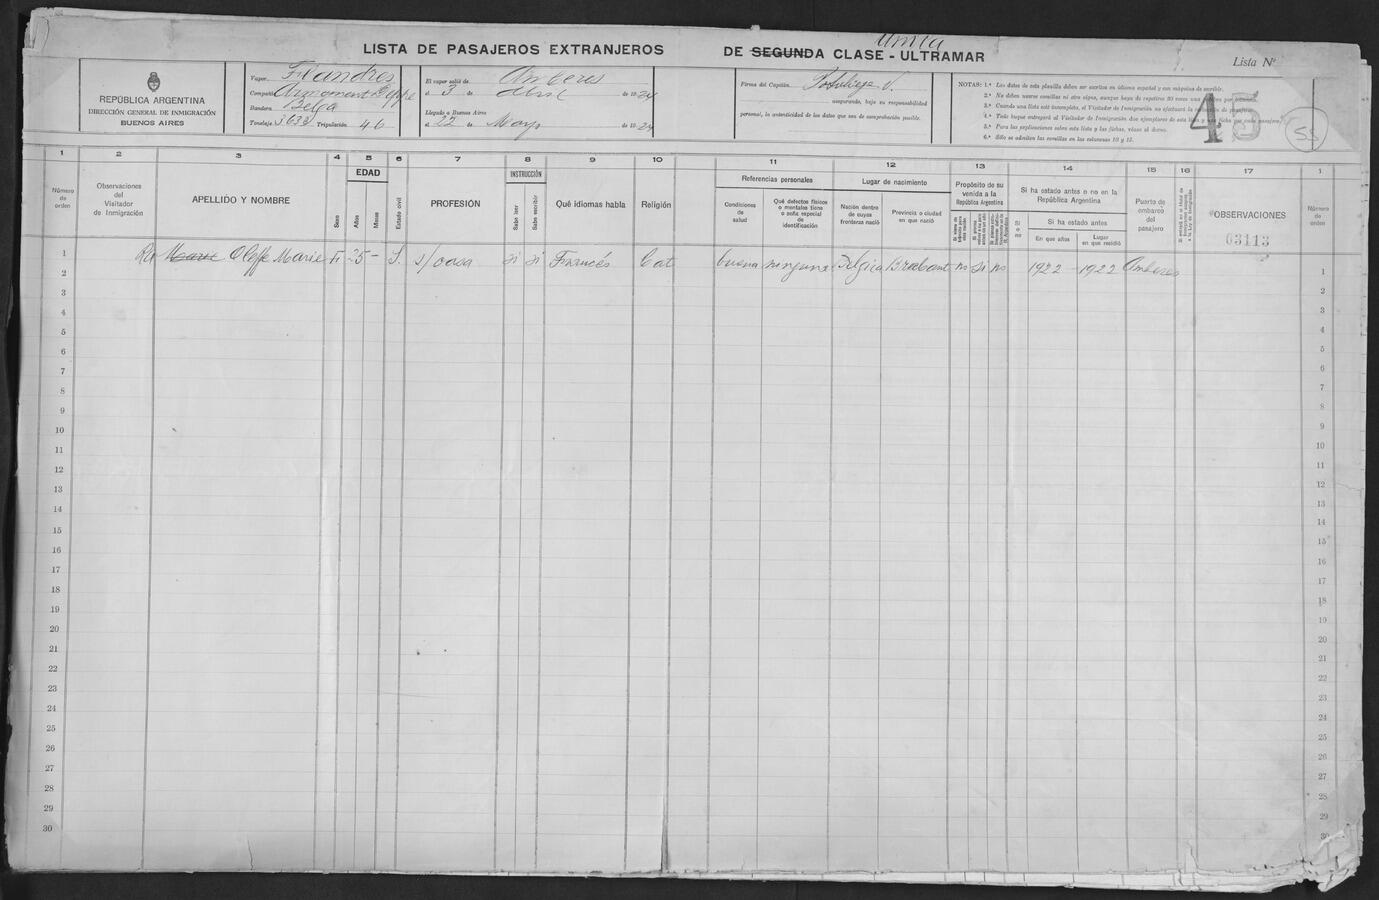 LISTA DE PASAJEROS EXTRANJEROS DE SEGUNDA CLASE - ULTRAMAR
Lista Nº
REPÚBLICA ARGENTINA
DIRECCIÓN GENERAL DE INMIGRACIÓN
BUENOS AIRES
Vapor Flandres
Compañía Armement Deppe
Bandera Belga
Tonelaje 3633 Tripulación 46
El vapor salió de Amberes
a 3 de Abril de 1924
Llegado a Buenos Aires
a 22 de Mayo de 1924
Firma del Capitán
asegurando, bajo su responsabilidad
personal, la autenticidad de los datos que son de comprobación posible.
NOTAS: 1.ª Los datos de esta planilla deben ser escritos en idioma español y con máquina de escribir.
2.ª No deben usarse comillas ni otro signo, aunque haya de repetirse 30 veces una
3.ª Cuando una lista esté incompleta, el Visitador de Inmigración no efectuará la
4.ª Todo buque entregará al Visitador de Inmigración dos ejemplares de esta lista y una ficha por cada pasajero.
5.ª Para las explicaciones sobre esta lista y las fichas, véase al dorso.
6.ª Sólo se admiten las comillas en las columnas 10 y 15.
45
55
1 2 3 4 5 6 7 8 9 10 11 12 13 14 15 16 17 1
Número de orden
Observaciones del Visitador de Inmigración
APELLIDO Y NOMBRE
Sexo
EDAD
Años
Meses
Estado civil
PROFESIÓN
INSTRUCCIÓN
Sabe leer
Sabe escribir
Qué idiomas habla
Religión
Referencias personales
Condiciones de salud
Qué defectos físicos o mentales tiene o seña especial de identificación
Lugar de nacimiento
Nación dentro de cuyas fronteras nació
Provincia o ciudad en que nació
Propósito de su venida a la República Argentina
Si ha estado antes o no en la República Argentina
Sí o no
Si ha estado antes
En que años
Lugar en que residió
Puerto de embarco del pasajero
OBSERVACIONES
03113
Número de orden
1 Oleffe Marie F 25 - S. s/casa si si Francés Cat buena ninguna Belgica Brabant no si no 1922 - 1922 Amberes 1
2 2
3 3
4 4
5 5
6 6
7 7
8 8
9 9
10 10
11 11
12 12
13 13
14 14
15 15
16 16
17 17
18 18
19 19
20 20
21 21
22 22
23 23
24 24
25 25
26 26
27 27
28 28
29 29
30 30